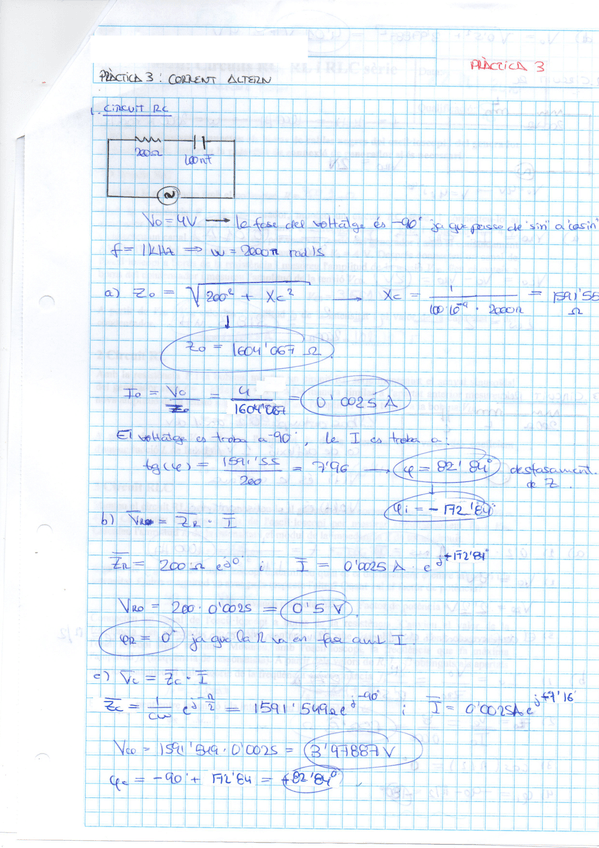 PRÀCTICA 3
PRÀCTICA 3: CORRENT ALTERN
1. CIRCUIT RC
200Ω 100nF
V0 = 4V → la fase del voltatge és -90° ja que passa de "sin" a "cosin"
f = 1kHz ⇒ ω = 2000π rad/s
a) Z0 = √(200² + Xc²) → Xc = 1 / (100·10⁻⁹ · 2000π) = 1591'55 Ω
Z0 = 1604'067 Ω
I0 = V0 / Z0 = 4 / 1604'067 = 0'0025 A
El voltatge es troba a -90°, la I es troba a:
tg(φ) = 1591'55 / 200 = 7'96 → φ = 82'84° desfasament de Z.
φi = -172'84°
b) V̄R0 = Z̄R · Ī
Z̄R = 200Ω e^j0° i Ī = 0'0025 A · e^j+172'84°
VR0 = 200 · 0'0025 = 0'5 V
φR = 0° ja que la R va en fase amb I.
c) V̄c = Z̄c · Ī
Z̄c = 1/cω e^j-π/2 = 1591'549Ω e^j-90° i Ī = 0'0025A e^j+7'16
Vc0 = 1591'549 · 0'0025 = 3'97887 V
φc = -90° + 172'84 = +82'84°